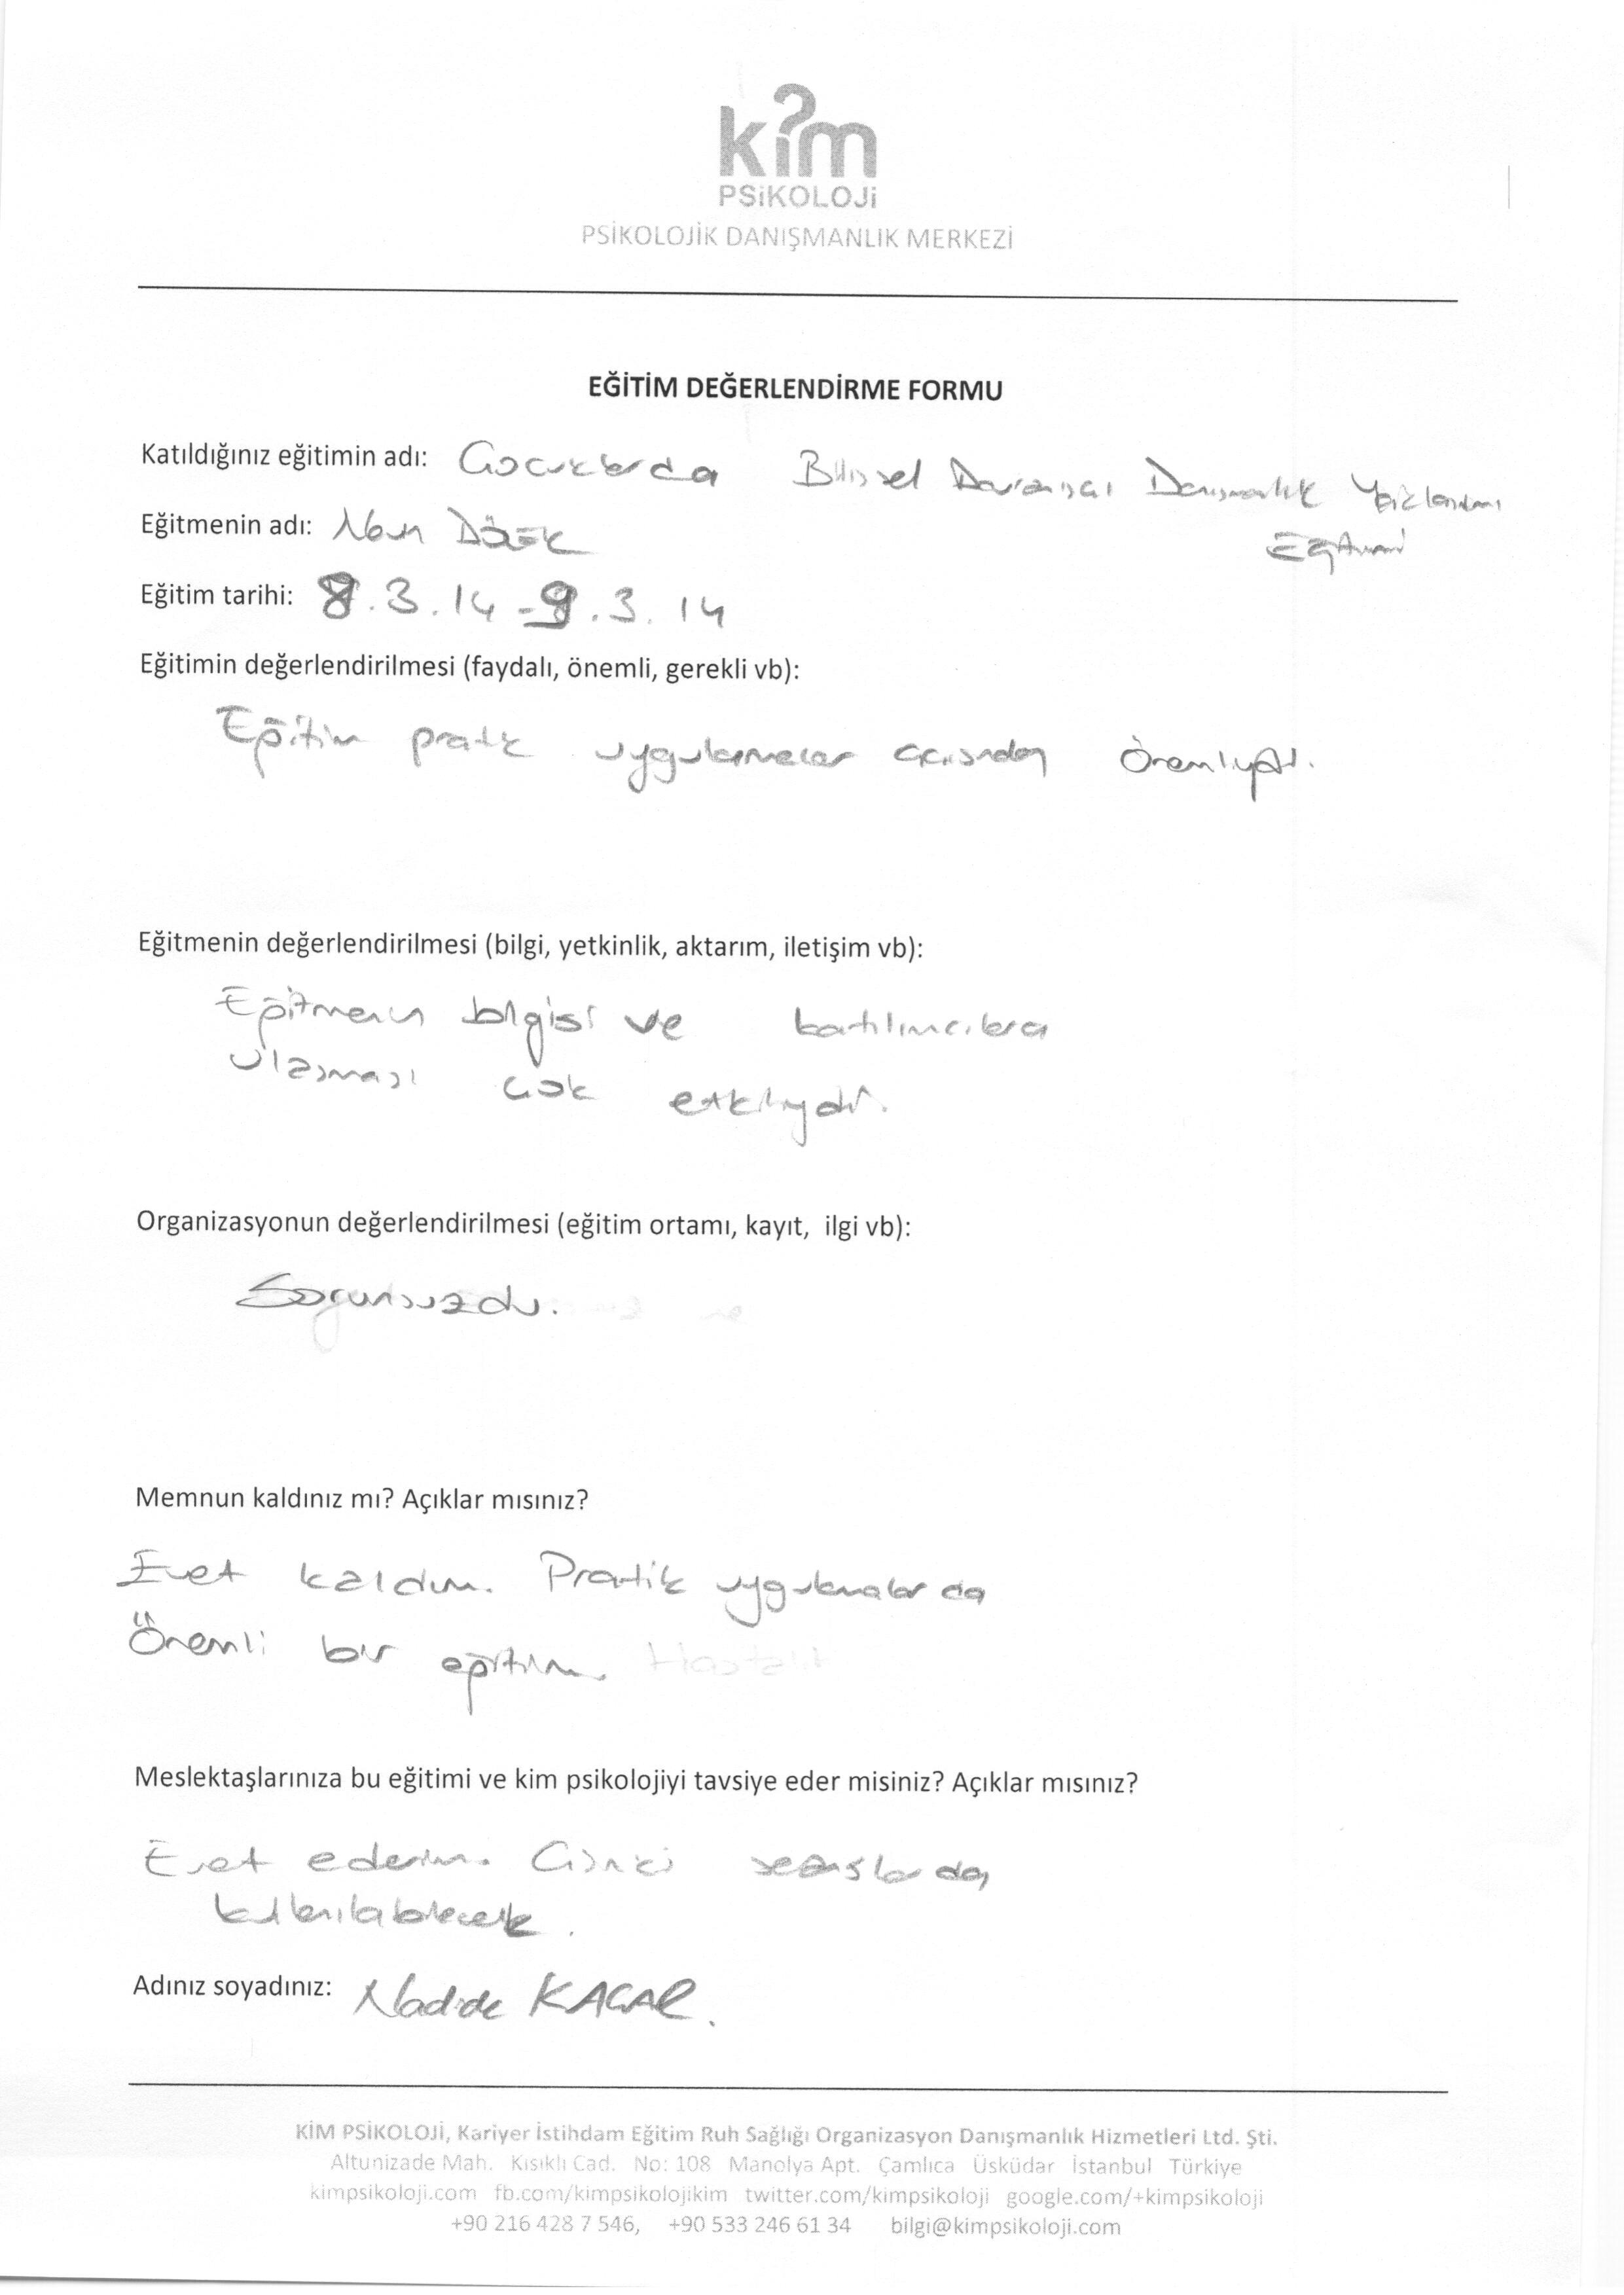 kim
PSiKOLOJi
PSİKOLOJİK DANIŞMANLIK MERKEZİ
EĞİTİM DEĞERLENDİRME FORMU
Katıldığınız eğitimin adı: Çocuklarda Bilişsel Davranışçı Danışmanlık Yaklaşımı
Eğitimi
Eğitmenin adı:
Eğitim tarihi: 8.3.14-9.3.14
Eğitimin değerlendirilmesi (faydalı, önemli, gerekli vb):
Eğitim pratik uygulamalar açısından önemliydi.
Eğitmenin değerlendirilmesi (bilgi, yetkinlik, aktarım, iletişim vb):
Eğitmenin bilgisi ve katılımcılara
ulaşması çok etkiliydi.
Organizasyonun değerlendirilmesi (eğitim ortamı, kayıt, ilgi vb):
Sorunsuzdu.
Memnun kaldınız mı? Açıklar mısınız?
Evet kaldım. Pratik uygulamalarda
Önemli bir eğitim.
Meslektaşlarınıza bu eğitimi ve kim psikolojiyi tavsiye eder misiniz? Açıklar mısınız?
Evet ederim. Çünkü seanslarda
kullanılabilecek.
Adınız soyadınız: Nadide KAÇAR.
KİM PSİKOLOJİ, Kariyer İstihdam Eğitim Ruh Sağlığı Organizasyon Danışmanlık Hizmetleri Ltd. Şti.
Altunizade Mah. Kısıklı Cad. No: 108 Manolya Apt. Çamlıca Üsküdar İstanbul Türkiye
kimpsikoloji.com fb.com/kimpsikolojikim twitter.com/kimpsikoloji google.com/+kimpsikoloji
+90 216 428 7 546, +90 533 246 61 34 bilgi@kimpsikoloji.com